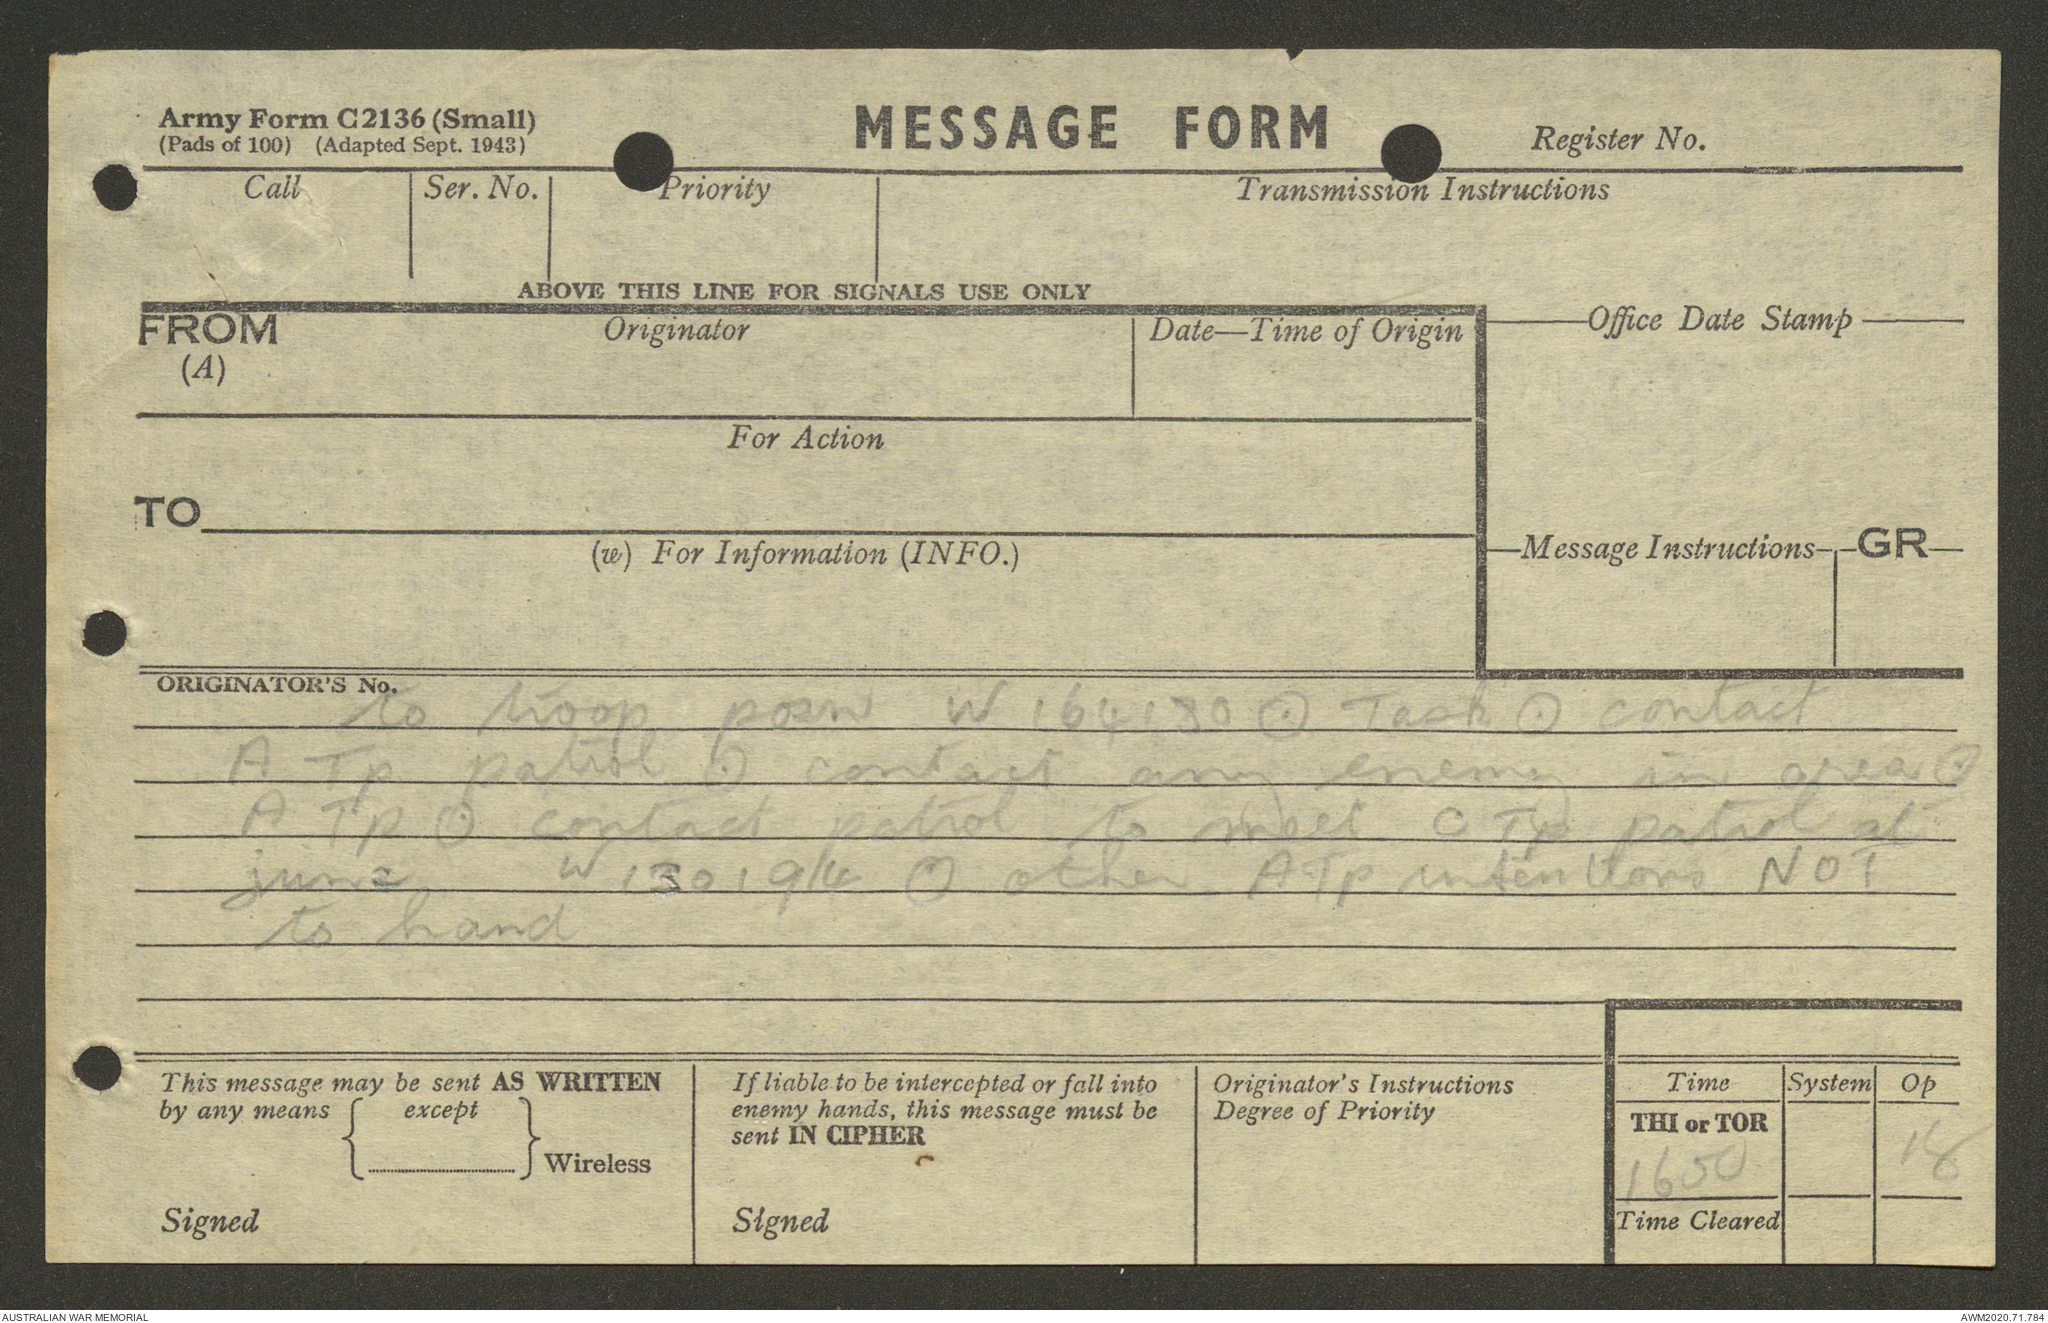 Army Form C2136 (Small)
(Pads of 100) (Adapted Sept. 1943)
MESSAGE FORM
Register No.
Call
Ser. No.
Priority
Transmission Instructions
ABOVE THIS LINE FOR SIGNALS USE ONLY
FROM
(A)
Originator
Date—Time of Origin
Office Date Stamp
For Action
TO
(w) For Information (INFO.)
Message Instructions
GR
ORIGINATOR'S No.
to troop posn W 164180 ⊙ Task ⊙ contact
A Tp patrol ⊙ contact any enemy in area ⊙
A Tp ⊙ contact patrol to meet C Tp patrol at
junc W 130194 ⊙ other A Tp intentions NOT
to hand
This message may be sent AS WRITTEN
by any means { except
} Wireless
Signed
If liable to be intercepted or fall into
enemy hands, this message must be
sent IN CIPHER
Signed
Originator's Instructions
Degree of Priority
Time
System
Op
THI or TOR
1650
18
Time Cleared
AUSTRALIAN WAR MEMORIAL
AWM2020.71.784